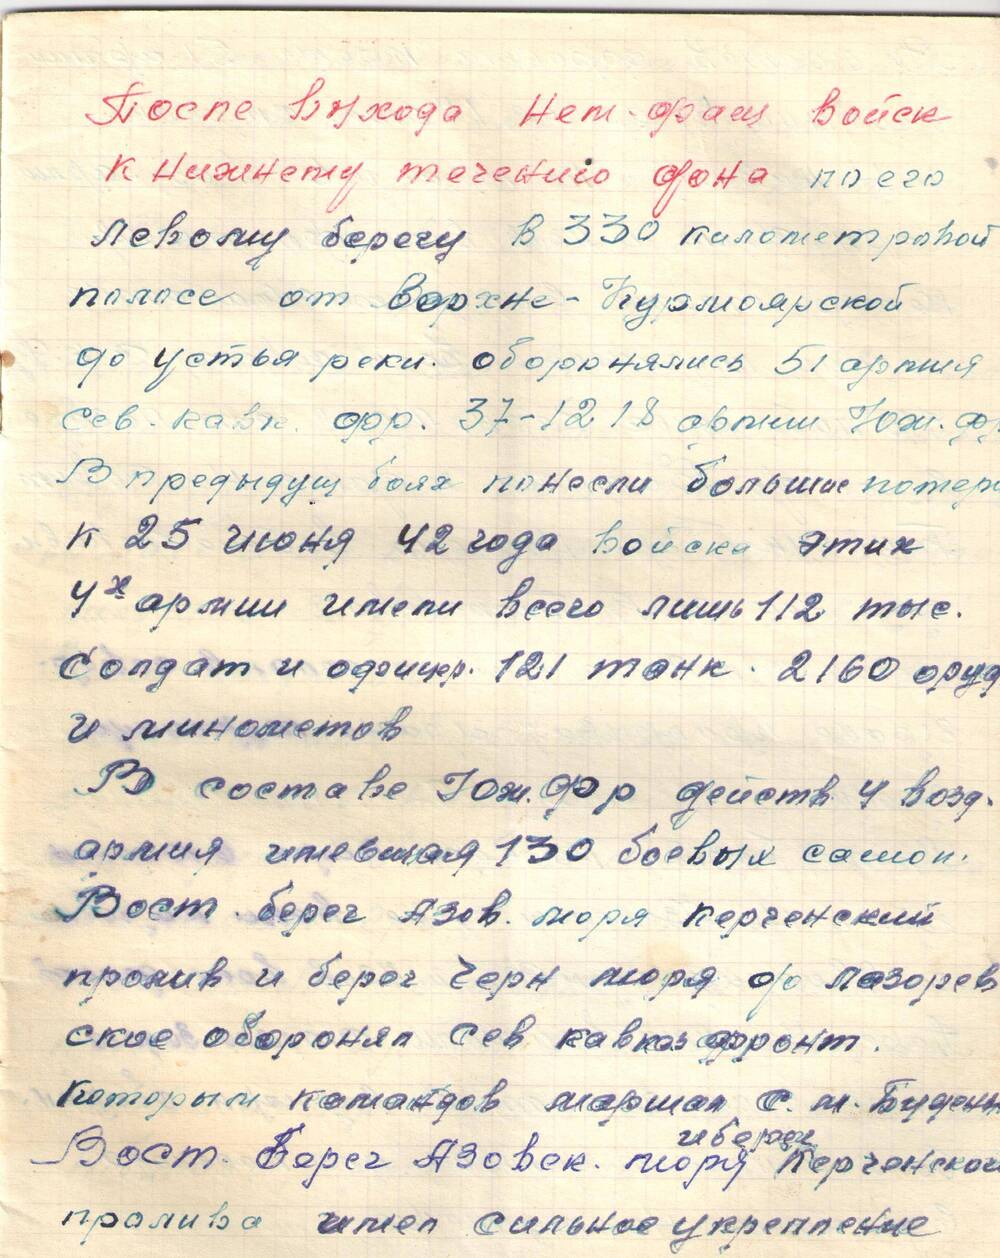 После выхода нем. фаш войск
к нижнему течению Дона по его
левому берегу в 330 километровой
полосе от Верхне-Курмоярской
до устья реки. оборонялись 51 армия
Сев. кавк. фр. 37-12 18 армии Юж. фр
В предыдущ боях понесли больши потери
к 25 июня 42 года войска этих
4х армии имели всего лишь 112 тыс.
Солдат и офицер. 121 танк. 2160 оруд
и минометов
В составе Юж. Фр действ. 4 возд.
армия имевшая 130 боевых самол.
Вост. берег Азов. моря Керченский
пролив и берег Черн моря до Лазорев
ское оборонял Сев кавказ фронт.
Которым командов маршал С. М. Буден
и берег
Вост. берег Азовск. моря Керченского
пролива имел сильное укрепление